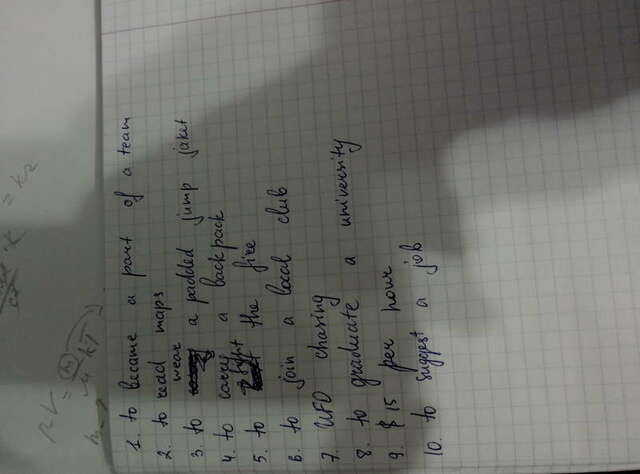 1. to became a part of a team
2. to read maps
3. to wear a padded jump jaket
4. to carry a backpack
5. to fight the fire
6. to join a local club
7. UFO chasing
8. to graduate a university
9. $15 per hour
10. to suggest a job